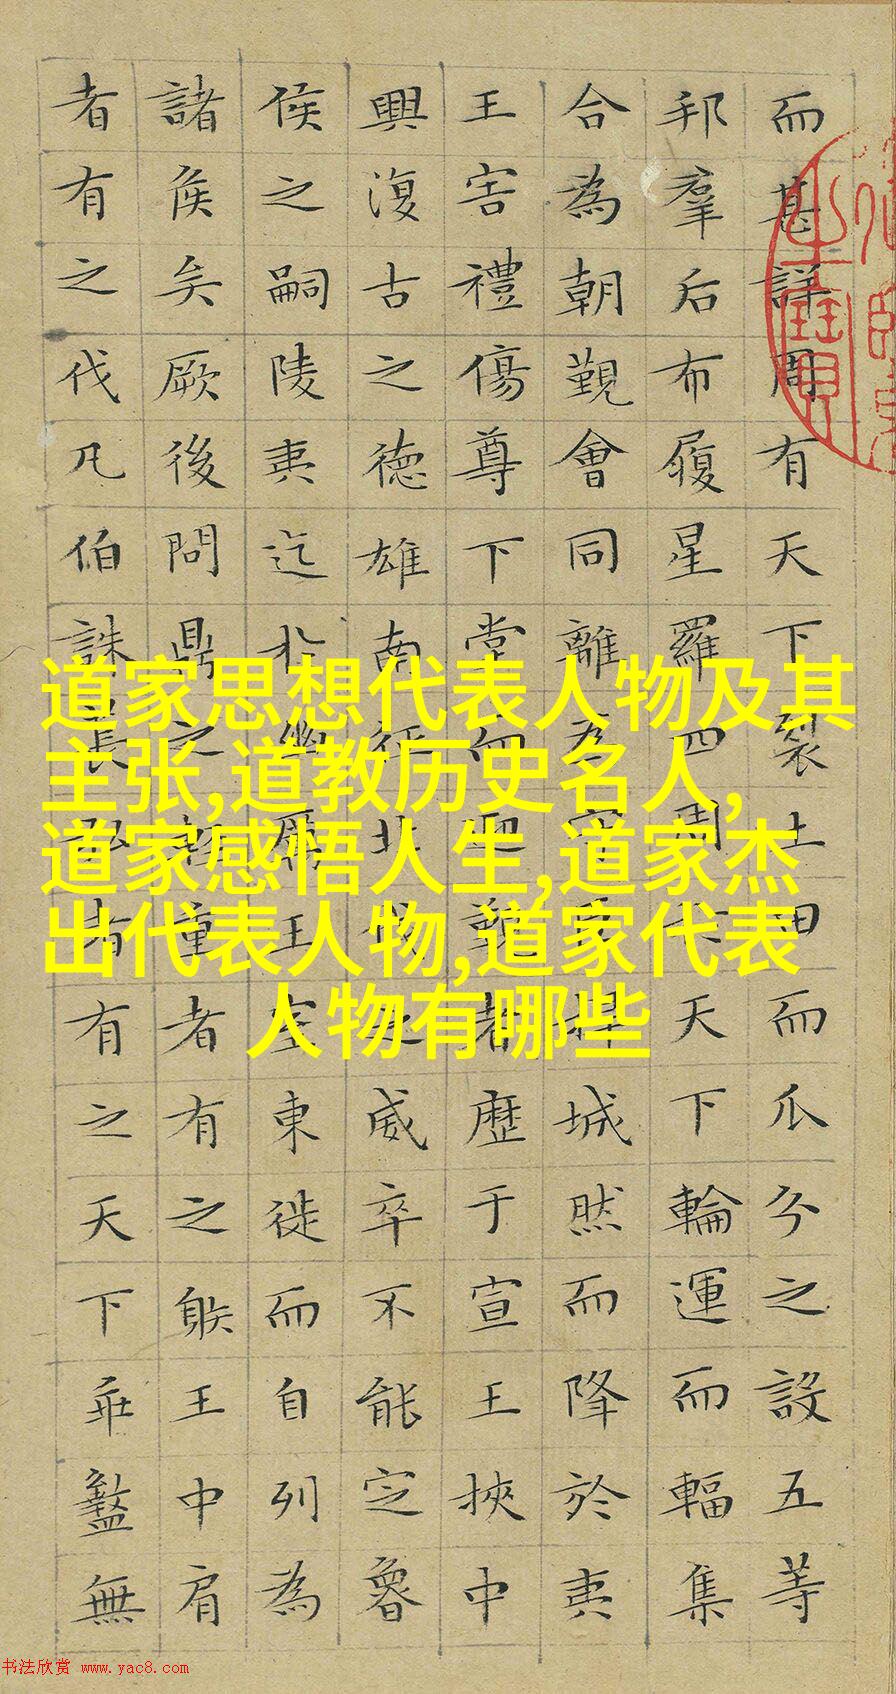 而甚詳周有天下裂土田而瓜分之設五等
邦羣后布履星羅四周天下輪運而輻集
合為朝覲會同離為守臣捍城然而降於夷
王害禮傷尊下堂而迎覲者歷于宣王挾中
興復古之德雄南征北伐之威卒不能定魯
侯之嗣陵夷迄於幽厲王室東徙而自列為
諸侯矣厥後問鼎之輕重者有之躲王中肩
者有之伐凡伯誅萇弘者有之天下乖盭無
道家思想代表人物及其
主张,道教历史名人,
道家感悟人生,道家杰
出代表人物,道家代表
人物有哪些
书法欣赏 www.yac8.com